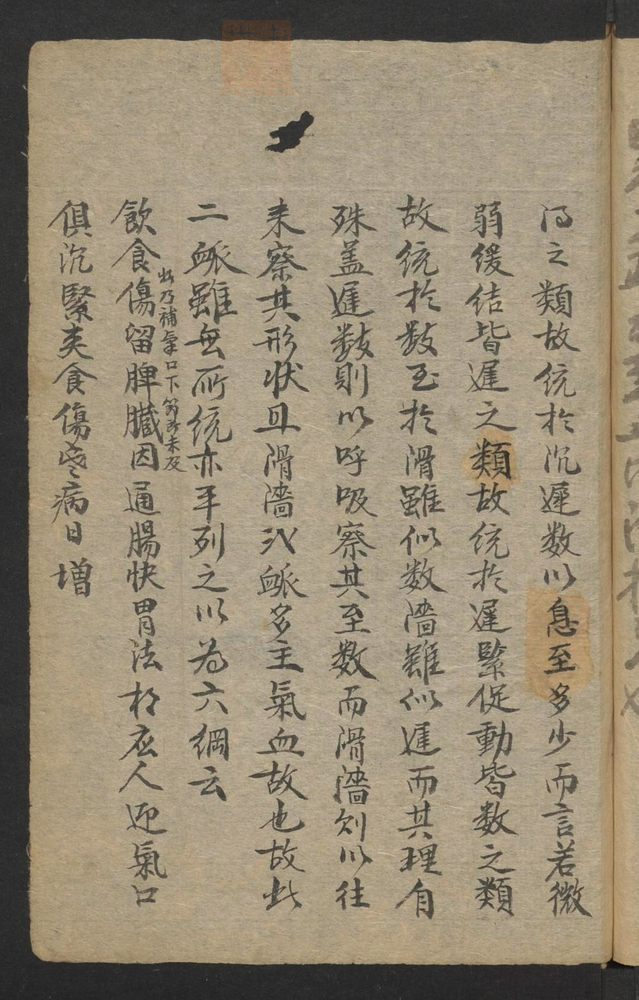 之類故统於沉遲数以息至多少而言若微
弱缓结皆遲之類故统於遲緊促動皆数之類
故统於数至於滑雖似数濇雖似遲而其理自
殊盖遲数則以呼吸察其至数而滑濇則以往
来察其形状且滑濇二脉多主氣血故也故此
二脉雖無所统亦平列之以为六綱云
此乃補氣口下節所未及
飲食傷留脾臓因通腸快胃法相应人迎氣口
俱沉緊夹食傷寒病日增